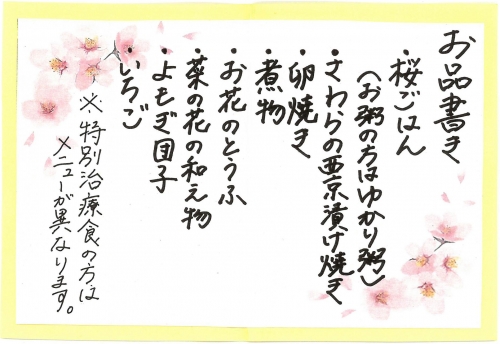 お品書き
・桜ごはん
(お粥の方はゆかり粥)
・さわらの西京漬け焼き
・卵焼き
・煮物
・お花のとうふ
・菜の花の和え物
・よもぎ団子
・いちご
※特別治療食の方は
メニューが異なります。